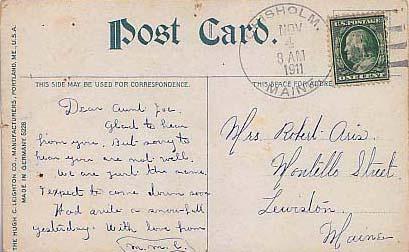 Post Card.
CHISHOLM.
NOV
4
8 AM
1911
MAINE
U.S. POSTAGE
ONE CENT
THIS SIDE MAY BE USED FOR CORRESPONDENCE.
THIS SPACE FOR ADDRESS
THE HUGH C. LEIGHTON CO., MANUFACTURERS, PORTLAND, ME., U.S.A.
MADE IN GERMANY
Dear Aunt
Glad to hear
from you. But sorry to
hear you are not well.
We are just the same.
I expect to come down soon
Had a snowfall
yesterday. With love from
M.M.C.
Mrs Robert
Montello Street
Lewiston
Maine